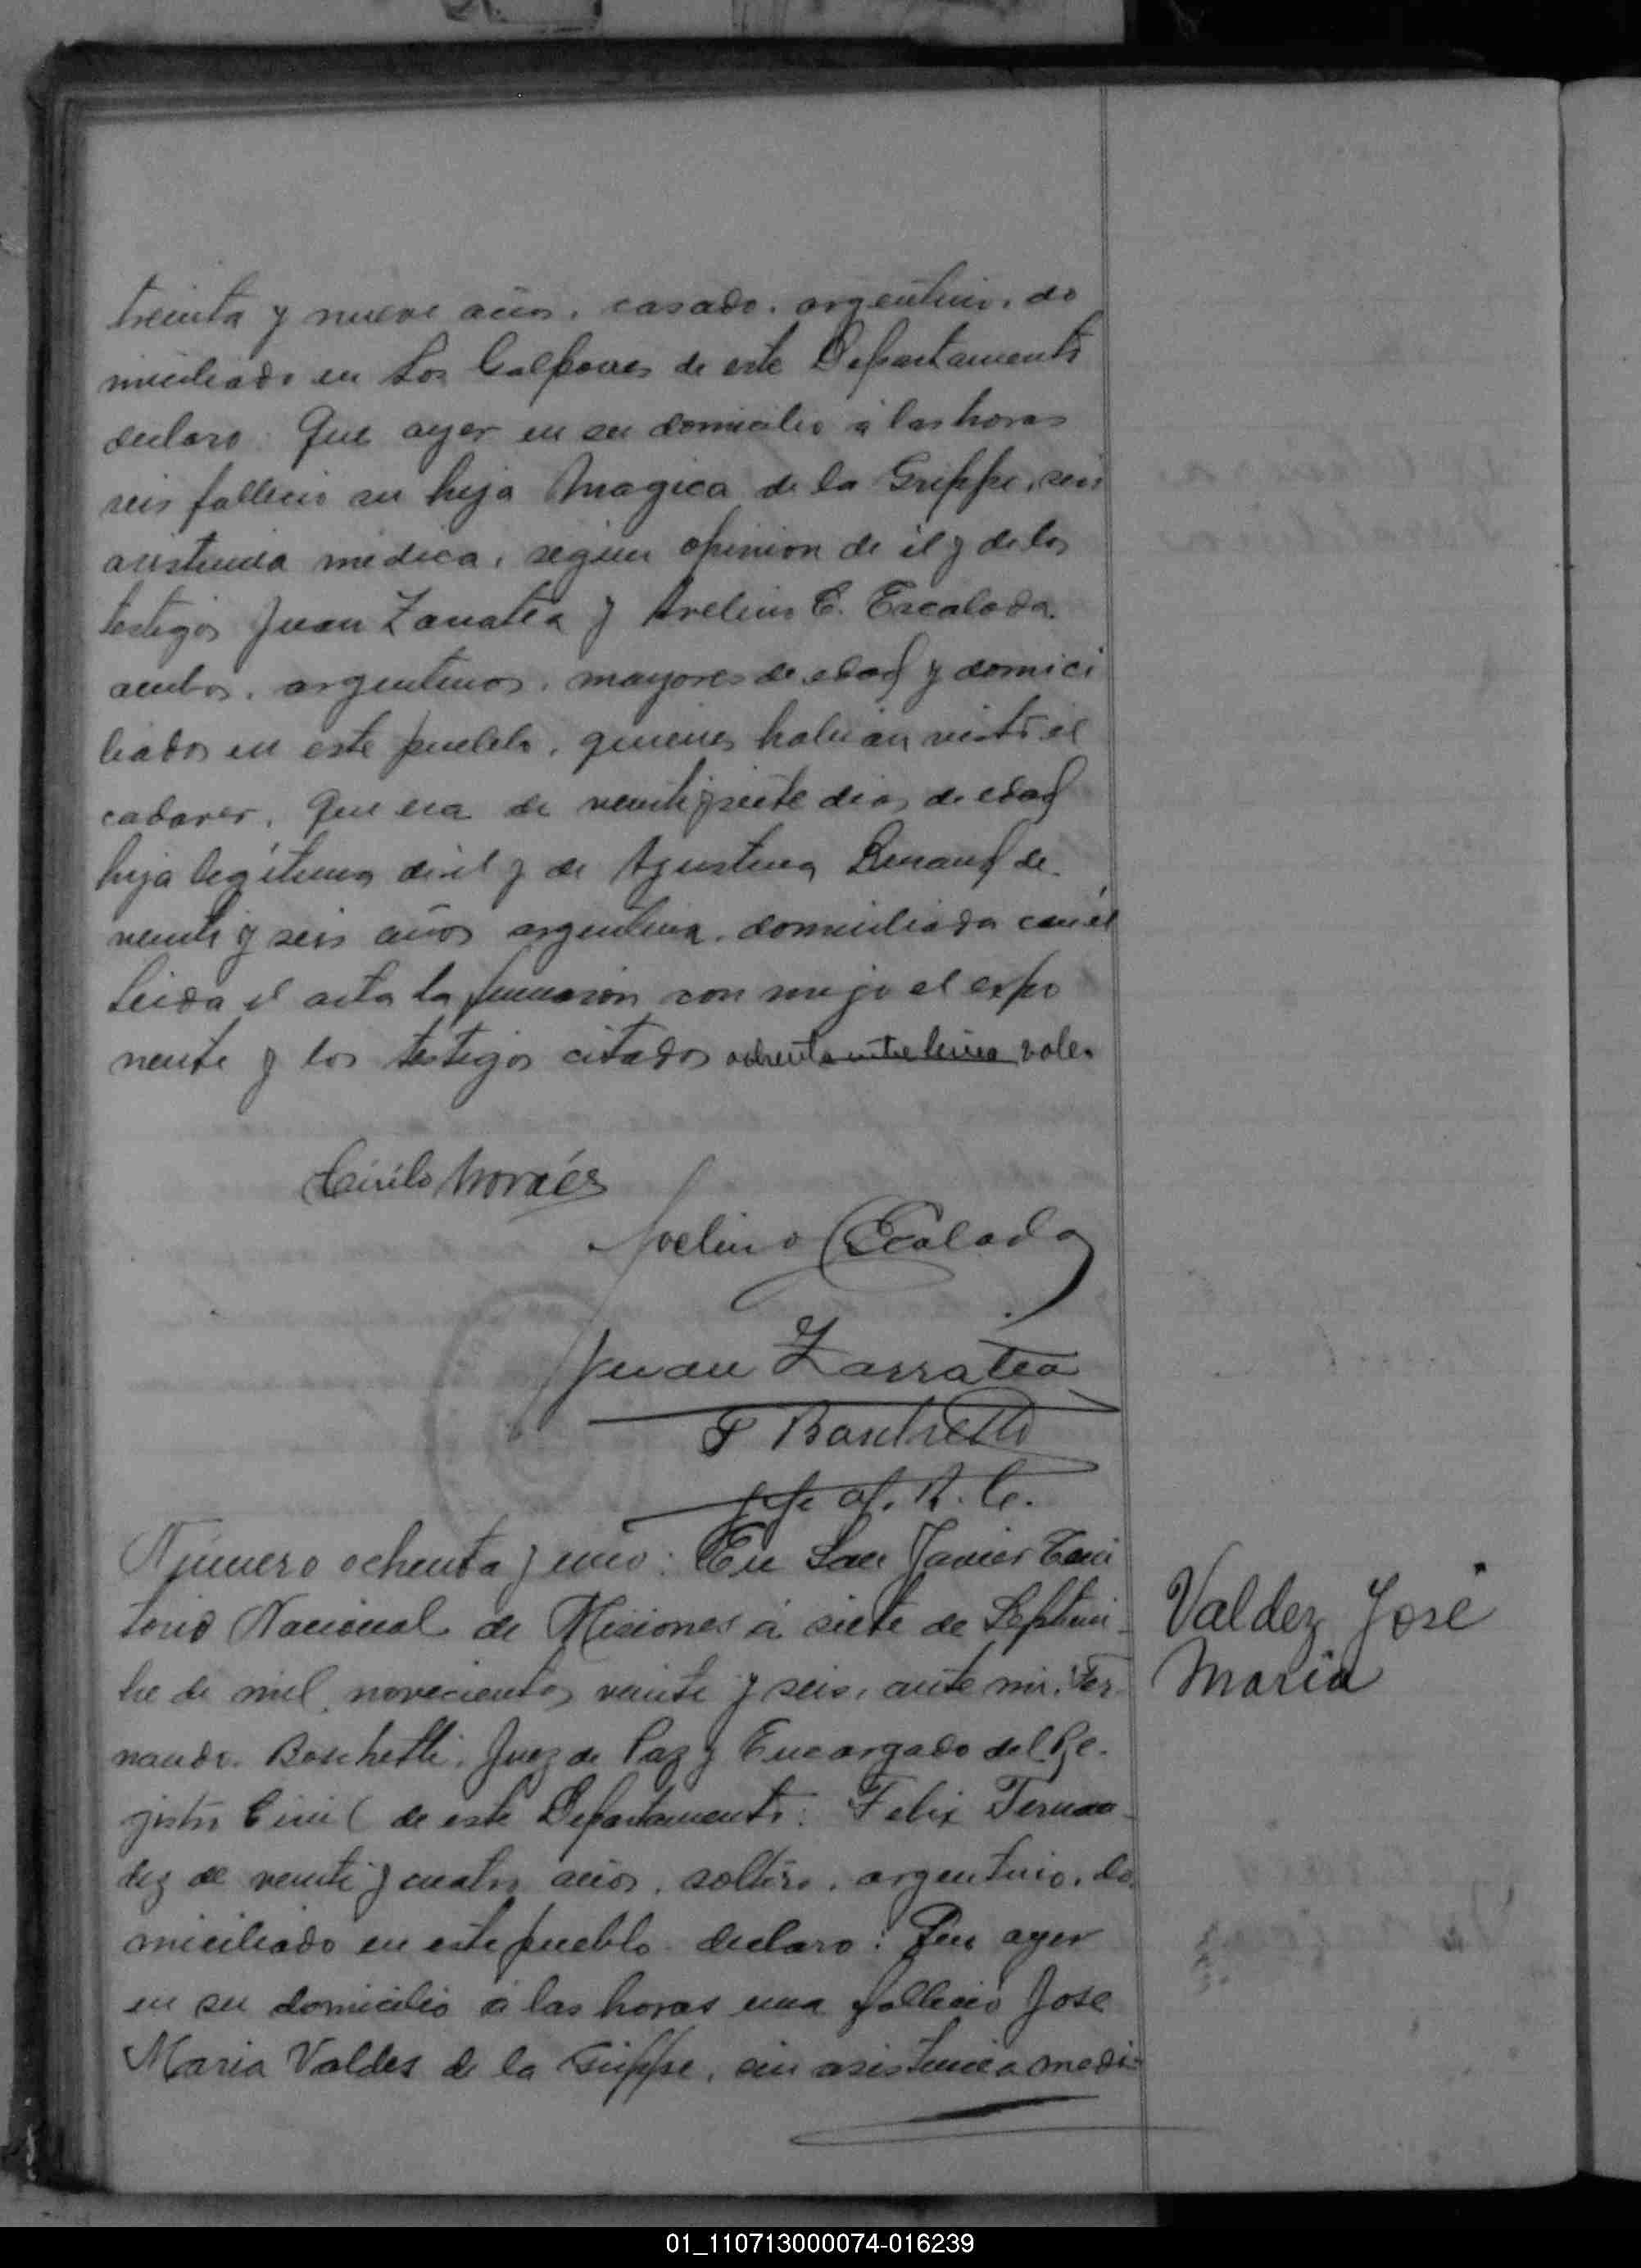 treinta y nueve años, casado, argentino, do
miciliado en Los Galpones de este Departamento
declaro: Que ayer en su domicilio á las horas
seis fallecio su hija Magica de la Grippe, sin
asistencia medica, segun opinion de él y de los
testigos Juan Zarratea y Avelino E. Escalada.
ambos, argentinos, mayores de edad y domici
liados en este pueblo, quienes habian visto el
cadaver. Que era de veintiysiete dias de edad
hija legítima de él y de Agustina de
veinte y seis años argentina, domiciliada con él
Leida el acta la firmaron con migo el expo
nente y los testigos citados ochenta entre linea vale.
Cirilo Moraes
Avelino Escalada
Juan Zarratea
F Boschetti
Jefe of. R. C.
Número ochenta y uno: En San Javier Terri
torio Nacional de Misiones á siete de Septiem-
bre de mil novecientos veinte y seis, ante mi, Fer-
nando Boschetti, Juez de Paz y Encargado del Re-
gistro Civil de este Departamento: Felix Fernan-
dez de veinte y cuatro años, soltero, argentino, do
miciliado en este pueblo declaro: Que ayer
en su domicilio á las horas una fallecio Jose
Maria Valdes de la Grippe, sin asistencia medi-
Valdez José
Maria
01_110713000074-016239